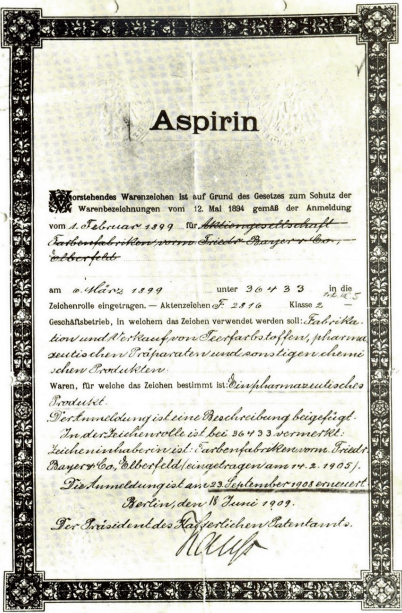 Aspirin
Vorstehendes Warenzeichen ist auf Grund des Gesetzes zum Schutz der
Warenbezeichnungen vom 12. Mai 1894 gemäß der Anmeldung
vom 1. Februar 1899 für Aktiengesellschaft
Farbenfabriken vorm Friedr Bayer & Co.,
Elberfeld
am 6. März 1899 unter 36433 in die
Zeichenrolle eingetragen. — Aktenzeichen F. 2816 Klasse 2
Geschäftsbetrieb, in welchem das Zeichen verwendet werden soll: Fabrika-
tion und Verkauf von Teerfarbstoffen, pharma-
zeutischen Präparaten und sonstigen chemi-
schen Produkten.
Waren, für welche das Zeichen bestimmt ist: Ein pharmazeutisches
Produkt.
Der Anmeldung ist eine Beschreibung beigefügt.
In der Zeichenrolle ist bei 36433 vermerkt:
Zeicheninhaberin ist: Farbenfabriken vorm. Friedr.
Bayer & Co, Elberfeld /eingetragen am 14.2.1905/.
Die Anmeldung ist am 23. September 1908 erneuert.
Berlin, den 18 Juni 1909.
Der Präsident des Kaiserlichen Patentamts.